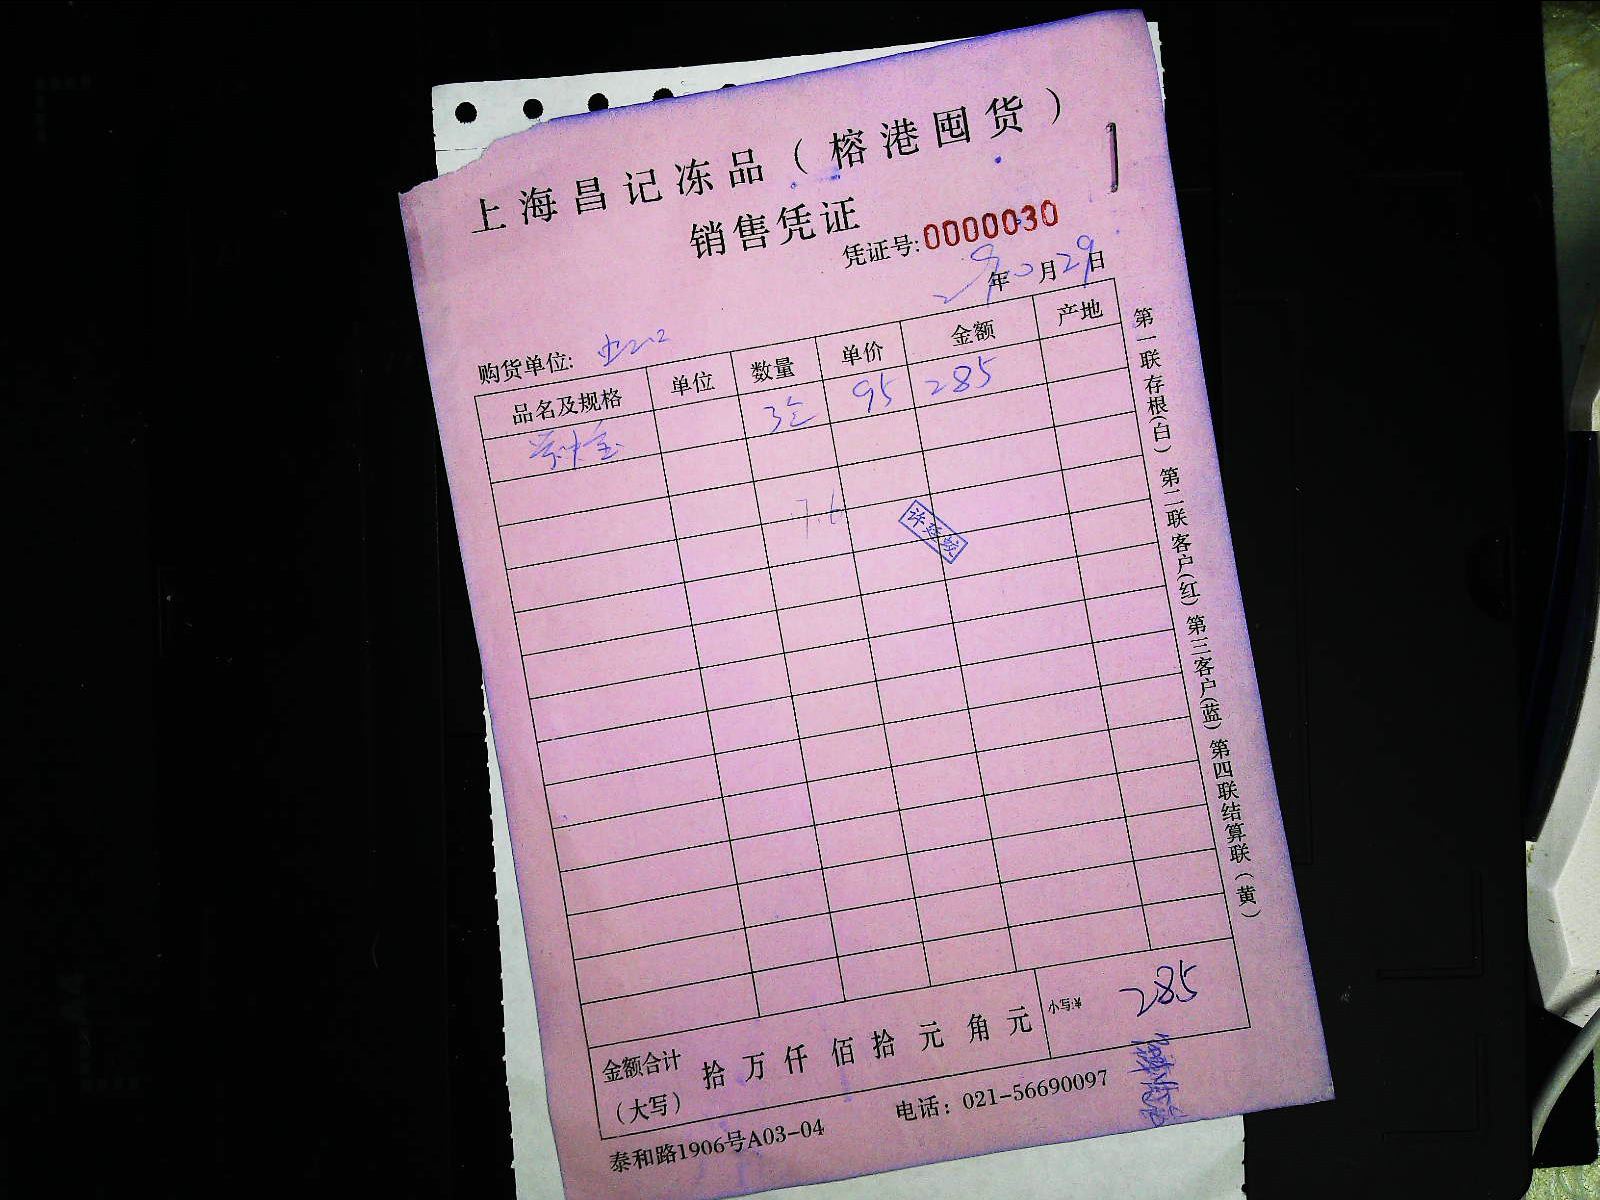 上海昌记冻品（榕港囤货）
销售凭证
凭证号:0000030
年 月29日
购货单位:
品名及规格 单位 数量 单价 金额 产地
3 95 285
7.6
金额合计（大写） 拾万仟佰拾元角元 小写:¥ 285
泰和路1906号A03-04 电话：021-56690097
第一联存根(白) 第二联客户(红) 第三客户(蓝) 第四联结算联(黄)